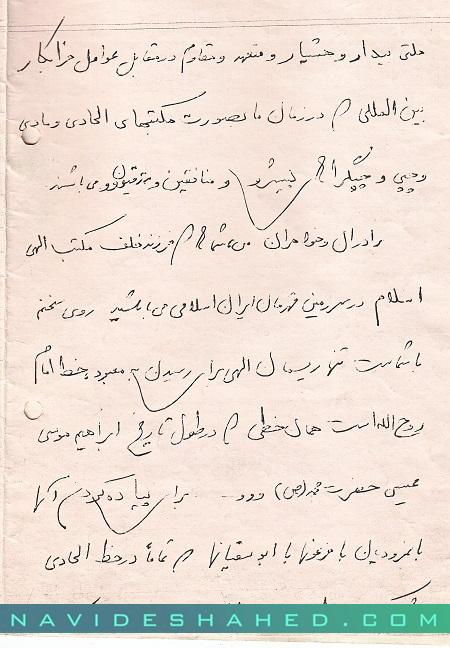 ملتی بیدار و هشیار و متعهد و مقاوم در مقابل عوامل خرابکار
بین المللی که در زمان ما بصورت مکتبهای الحادی و مادی
و چپی و چپگراها و منافقین و می باشند
برادران و خواهران من شما که فرزند خلف مکتب الهی
اسلام در سرزمین قهرمان ایران اسلامی می باشید روی سخنم
با شماست تنها ریسمان الهی برای رسیدن به معبود خط امام
روح الله است همان خطی که در طول تاریخ ابراهیم موسی
عیسی حضرت محمد (ص) و و و برای پیاده کردن آنها
با نمرودیان با فرعونها با ابوسفیانها که تماماً در خط الحادی
NAVIDESHAHED.COM